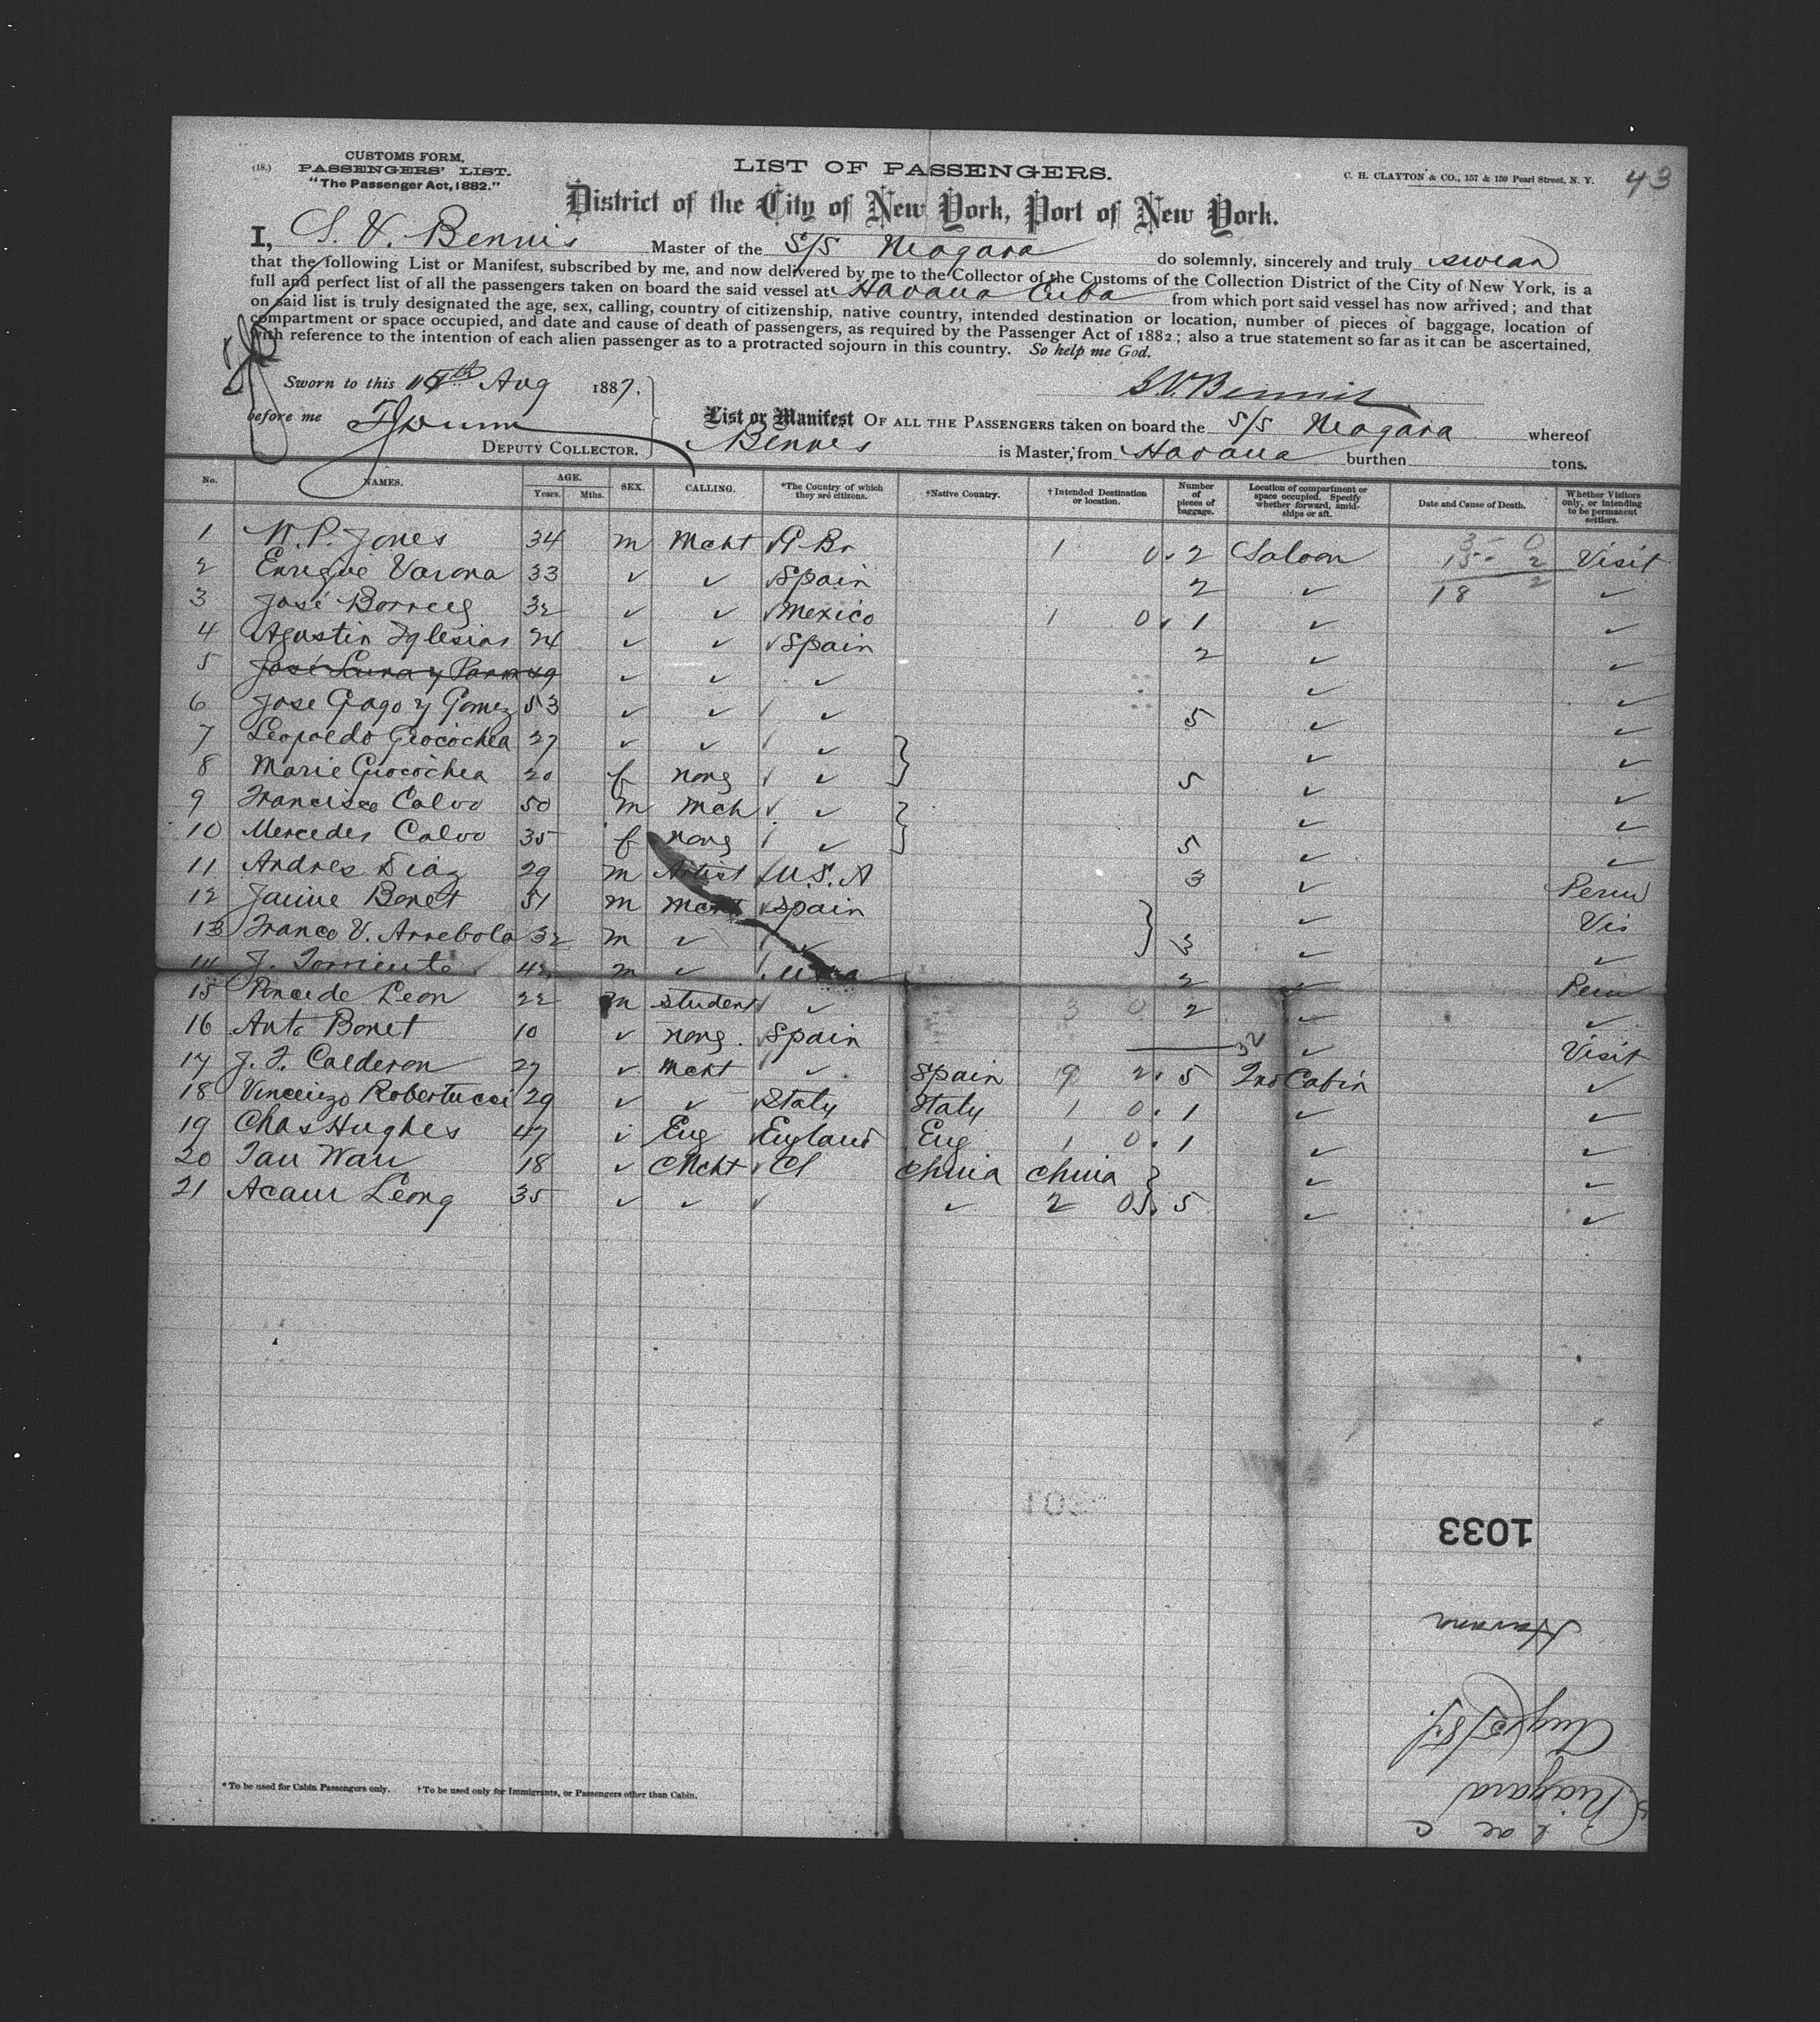 (18.) CUSTOMS FORM,
PASSENGERS' LIST.
"The Passenger Act, 1882."
LIST OF PASSENGERS.
C. H. CLAYTON & CO., 157 & 159 Pearl Street, N. Y. 43
District of the City of New York, Port of New York.
I, S. V. Bennis Master of the S/S Niagara do solemnly, sincerely and truly swear
that the following List or Manifest, subscribed by me, and now delivered by me to the Collector of the Customs of the Collection District of the City of New York, is a
full and perfect list of all the passengers taken on board the said vessel at Havana Cuba from which port said vessel has now arrived; and that
on said list is truly designated the age, sex, calling, country of citizenship, native country, intended destination or location, number of pieces of baggage, location of
compartment or space occupied, and date and cause of death of passengers, as required by the Passenger Act of 1882; also a true statement so far as it can be ascertained,
with reference to the intention of each alien passenger as to a protracted sojourn in this country. So help me God.
Sworn to this 15th Aug 1887.
S. V. Bennis
before me
DEPUTY COLLECTOR.
List or Manifest OF ALL THE PASSENGERS taken on board the S/S Niagara whereof
Bennis is Master, from Havana burthen tons.
No. NAMES. AGE. Years. Mths. SEX. CALLING. *The Country of which they are citizens. †Native Country. †Intended Destination or location. Number of pieces of baggage. Location of compartment or space occupied. Specify whether forward, amidships or aft. Date and Cause of Death. Whether Visitors only, or intending to be permanent settlers.
1 W. P. Jones 34 m Mcht G Br 1 0. 2 Saloon 3 - 0 Visit
2 Enrique Varona 33 ✓ ✓ Spain 2 ✓ 15 - 2 ✓
3 José Borrell 32 ✓ ✓ Mexico 1 0. 1 ✓ 18 2 ✓
4 Agustin Yglesias 24 ✓ ✓ Spain 2 ✓ ✓
5 José Luna y Parra 49 ✓ ✓ ✓ ✓ ✓
6 Jose Gago y Gomez 53 ✓ ✓ ✓ 5 ✓ ✓
7 Leopoldo Giocochea 27 ✓ ✓ ✓ } ✓ ✓
8 Marie Giocochea 20 f none ✓ } 5 ✓ ✓
9 Francisco Calvo 50 m Mch ✓ } ✓ ✓
10 Mercedes Calvo 35 f none ✓ } 5 ✓ ✓
11 Andres Diaz 29 m Artist U.S.A 3 ✓ Perm
12 Jaime Bonet 51 m Mcht Spain } ✓ Vis
13 Franco V. Arrebola 32 m ✓ ✓ } 3 ✓ ✓
14 J. Torriente 42 m ✓ USA 2 ✓ Perm
15 Ponce de Leon 22 m student ✓ 3 0 2 ✓ ✓
16 Anto Bonet 10 ✓ none. Spain ✓ Visit
17 J. F. Calderon 27 ✓ Mcht ✓ Spain 9 2. 5 2nd Cabin ✓
18 Vincenzo Robertucci 29 ✓ ✓ Italy Italy 1 0. 1 ✓ ✓
19 Chas Hughes 47 ✓ Eng England Eng 1 0. 1 ✓ ✓
20 Tau Wan 18 ✓ Mcht Ch China China } ✓ ✓
21 Acaun Leong 35 ✓ ✓ ✓ ✓ 2 0 }. 5 ✓ ✓
1033
Havana
Aug 15/87.
Niagara
*To be used for Cabin Passengers only. †To be used only for Immigrants, or Passengers other than Cabin.